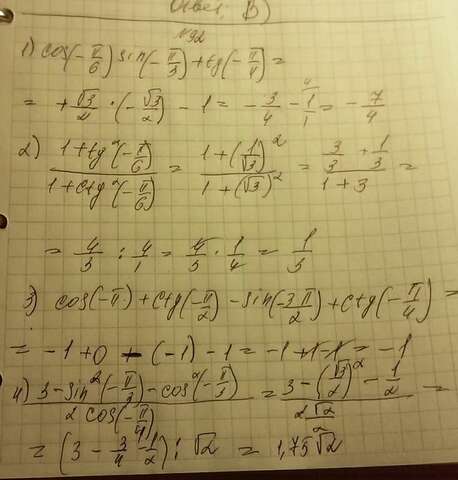 Ответ: В)
№92
1) cos(-π/6) sin(-π/3) + tg(-π/4) =
= +√3/2 · (-√3/2) - 1 = -3/4 - 1/1 = -7/4
2) (1+tg²(-π/6))/(1+ctg²(-π/6)) = (1+(1/√3)²)/(1+(√3)²) = (3/3+1/3)/(1+3) =
= 4/3 : 4/1 = 4/3 · 1/4 = 1/3
3) cos(-π) + ctg(-π/2) - sin(-3π/2) + ctg(-π/4) =
= -1+0 - (-1) - 1 = -1+1-1 = -1
4) (3-sin²(-π/3)-cos²(-π/3))/(2cos(-π/4)) = (3-(√3/2)²-1/2)/(2√2/2) =
= (3 - 3/4 - 1/2) : √2 = 1,75√2